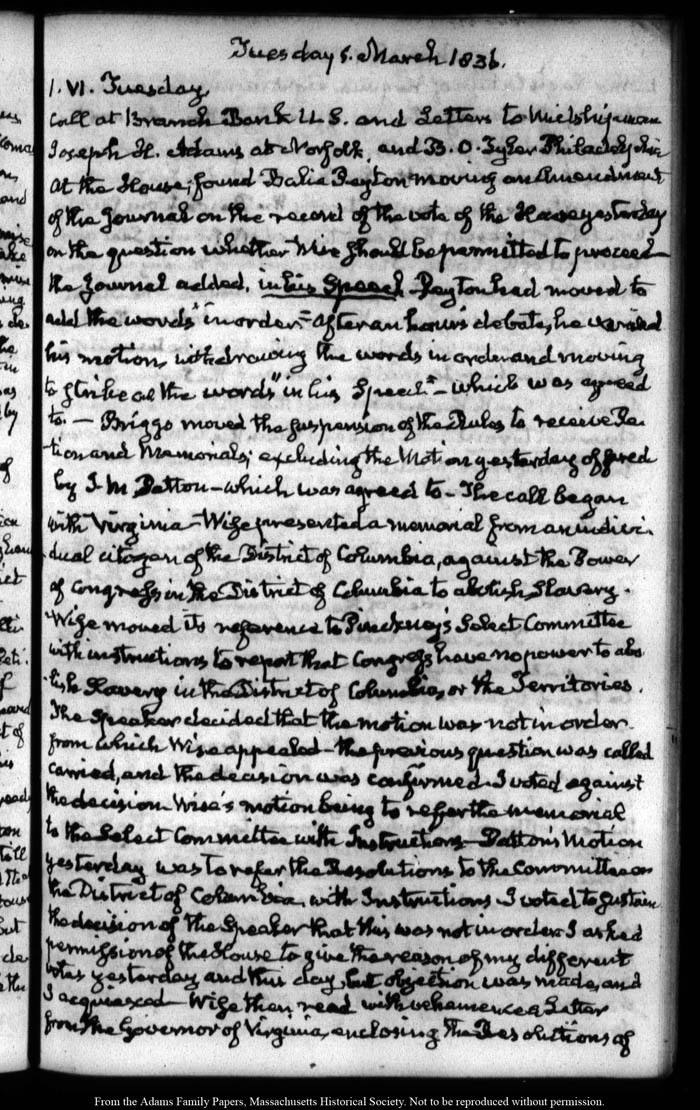 Tuesday 1. March 1836.
1. VI. Tuesday
Call at Branch Bank U.S. and Letters to Midshipman
Joseph H. Adams at Norfolk, and B. O. Tyler Philadelphia
At the House, found Balie Peyton moving an Amendment
of the Journal on the record of the vote of the House yesterday
on the question whether Wise should be permitted to proceed
the Journal added, in his Speech Peyton had moved to
add the words "in order." After an hour's debate, he varied
his motion, withdrawing the words in order and moving
to strike out the words "in his Speech" – which was agreed
to. — Briggs moved the suspension of the Rules to receive Pe-
tion and Memorials; excluding the Motion yesterday offered
by J M Patton – which was agreed to – The call began
with Virginia – Wise presented a memorial from an indivi-
dual citizen of the District of Columbia, against the Power
of Congress in the District of Columbia to abolish Slavery.
Wise moved its reference to Pinckney's Select Committee
with instructions to report that Congress have no power to abo-
lish Slavery in the District of Columbia, or the Territories.
The Speaker decided that the motion was not in order
from which Wise appealed – the previous question was called
carried, and the decision was confirmed. I voted against
the decision Wise's motion being to refer the memorial
to the Select Committee with Instructions – Patton's Motion
yesterday was to refer the Resolutions to the Committee on
the District of Columbia, with Instructions I voted to sustain
the decision of the Speaker that this was not in order. I asked
permission of the House to give the reason of my different
votes yesterday and this day, but objection was made, and
I acquiesced – Wise then read with vehemence a Letter
from the Governor of Virginia, enclosing the Resolutions of
From the Adams Family Papers, Massachusetts Historical Society. Not to be reproduced without permission.